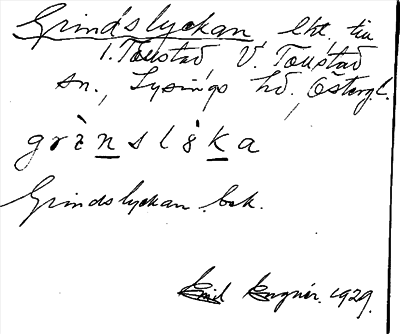 Grindslyckan, lht. tiu
1. Tollstad V. Tollstad
sn., Lysings hd, Östergl.
grìnslẙka
Grindslyckan bek.
Emil 1929.